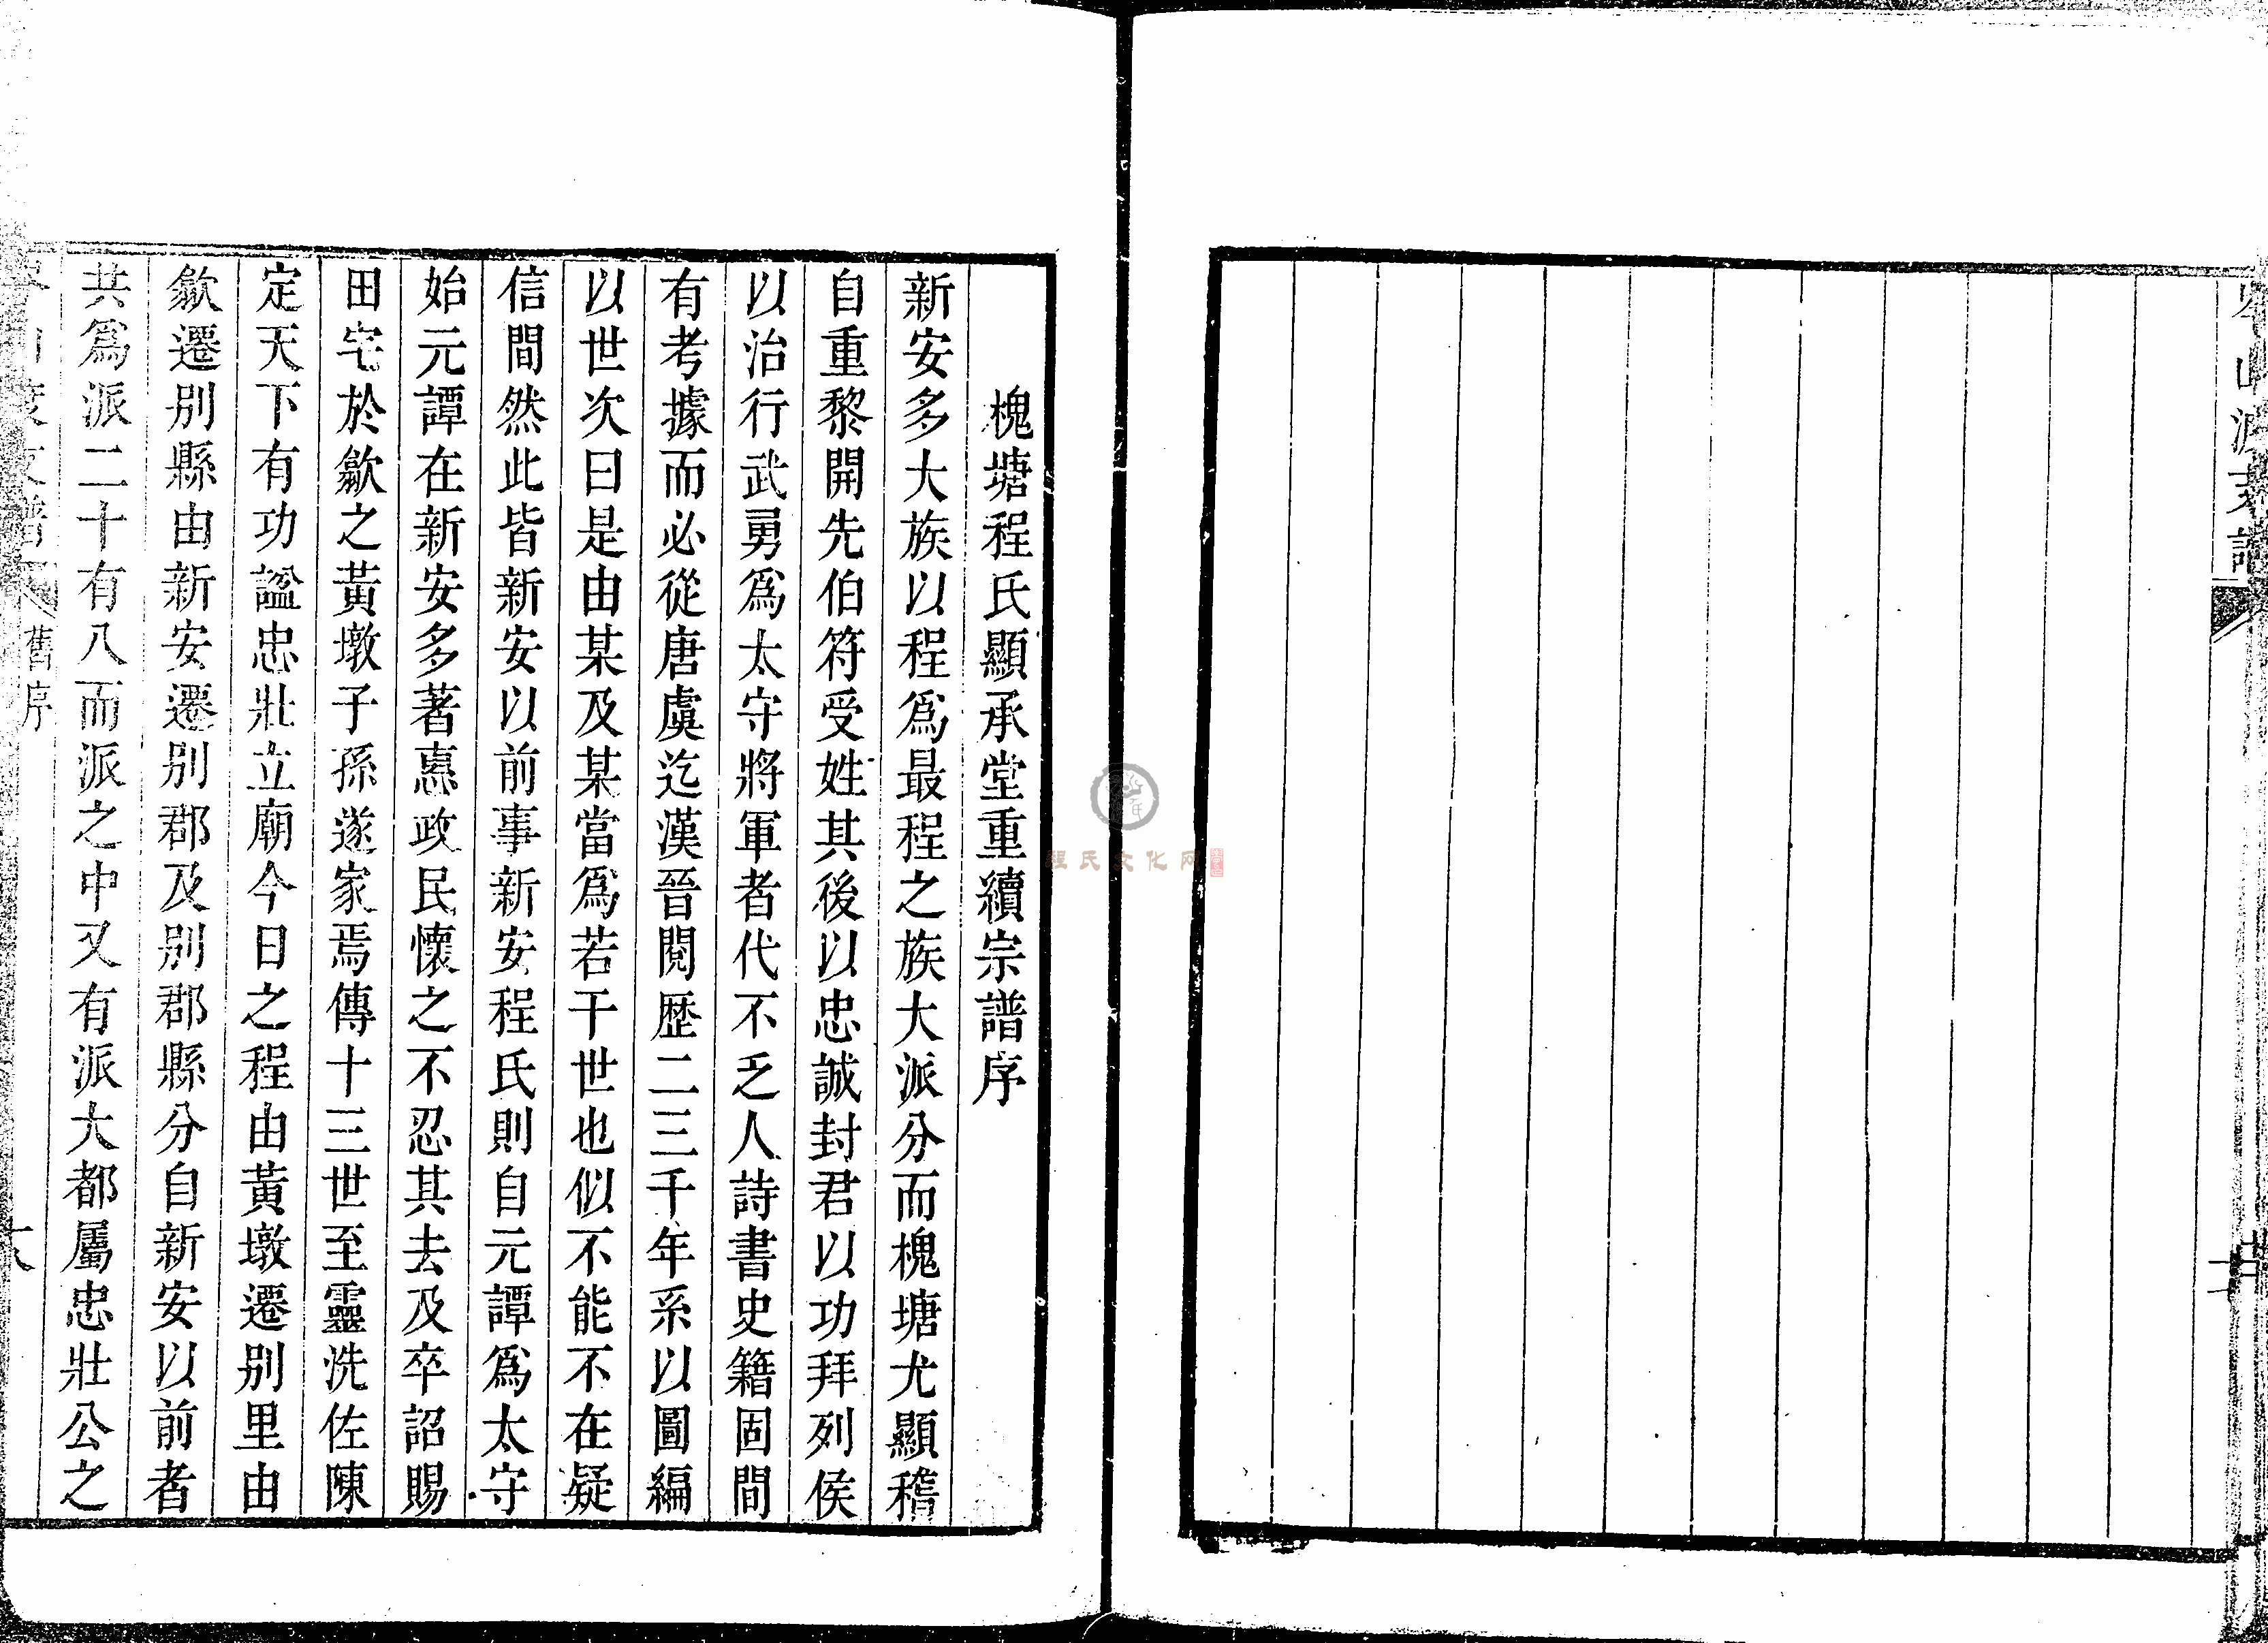 山派支譜
槐塘程氏顯承堂重續宗譜序
新安多大族以程爲最程之族大派分而槐塘尤顯稽
自重黎開先伯符受姓其後以忠誠封君以功拜列侯
以治行武勇爲太守將軍者代不乏人詩書史籍固間
有考據而必從唐虞迄漢晉閱歷二三千年系以圖編
以世次曰是由某及某當爲若干世也似不能不在疑
信間然此皆新安以前事新安程氏則自元譚爲太守
始元譚在新安多著惠政民懷之不忍其去及卒詔賜
田宅於歙之黃墩子孫遂家焉傳十三世至靈洗佐陳
定天下有功諡忠壯立廟今日之程由黃墩遷别里由
歙遷别縣由新安遷别郡及别郡縣分自新安以前者
共爲派二十有八而派之中又有派大都屬忠壯公之
支譜
舊序
六
程氏文化网